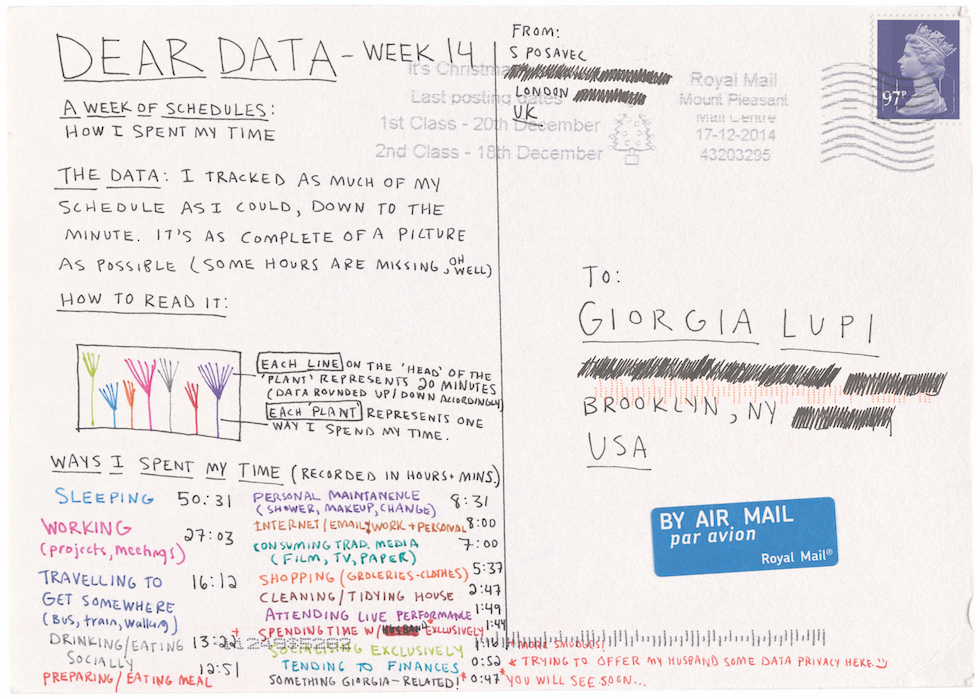 DEAR DATA - WEEK 14
A WEEK OF SCHEDULES:
HOW I SPENT MY TIME
THE DATA: I TRACKED AS MUCH OF MY
SCHEDULE AS I COULD, DOWN TO THE
MINUTE. IT'S AS COMPLETE OF A PICTURE
AS POSSIBLE (SOME HOURS ARE MISSING, OH WELL)
HOW TO READ IT:
EACH LINE ON THE 'HEAD' OF THE
'PLANT' REPRESENTS 20 MINUTES
(DATA ROUNDED UP/DOWN ACCORDINGLY)
EACH 'PLANT' REPRESENTS ONE
WAY I SPEND MY TIME.
WAYS I SPENT MY TIME (RECORDED IN HOURS + MINS.)
SLEEPING 50:31
WORKING 27:03
(projects, meetings)
TRAVELLING TO 16:12
GET SOMEWHERE
(Bus, train, walking)
DRINKING/EATING 13:22
SOCIALLY
PREPARING/EATING MEAL 12:51
PERSONAL MAINTANENCE 8:31
(SHOWER, MAKEUP, CHANGE)
INTERNET/EMAIL/WORK + PERSONAL 8:00
CONSUMING TRAD. MEDIA 7:00
(FILM, TV, PAPER)
SHOPPING (GROCERIES-CLOTHES) 5:37
CLEANING/TIDYING HOUSE 2:47
ATTENDING LIVE PERFORMANCE 1:49
*SPENDING TIME W/HUSBAND* EXCLUSIVELY 1:44
SOCIALISING EXCLUSIVELY 1:10
TENDING TO FINANCES 0:52
SOMETHING GIORGIA-RELATED!* 0:47
*MORE SMUDGES!
* TRYING TO OFFER MY HUSBAND SOME DATA PRIVACY HERE
*YOU WILL SEE SOON...
FROM:
S POSAVEC
LONDON
UK
It's Christmas
Last posting dates
1st Class - 20th December
2nd Class - 18th December
Royal Mail
Mount Pleasant
Mail Centre
17-12-2014
43203295
97P
TO:
GIORGIA LUPI
BROOKLYN, NY
USA
BY AIR MAIL
par avion
Royal Mail®